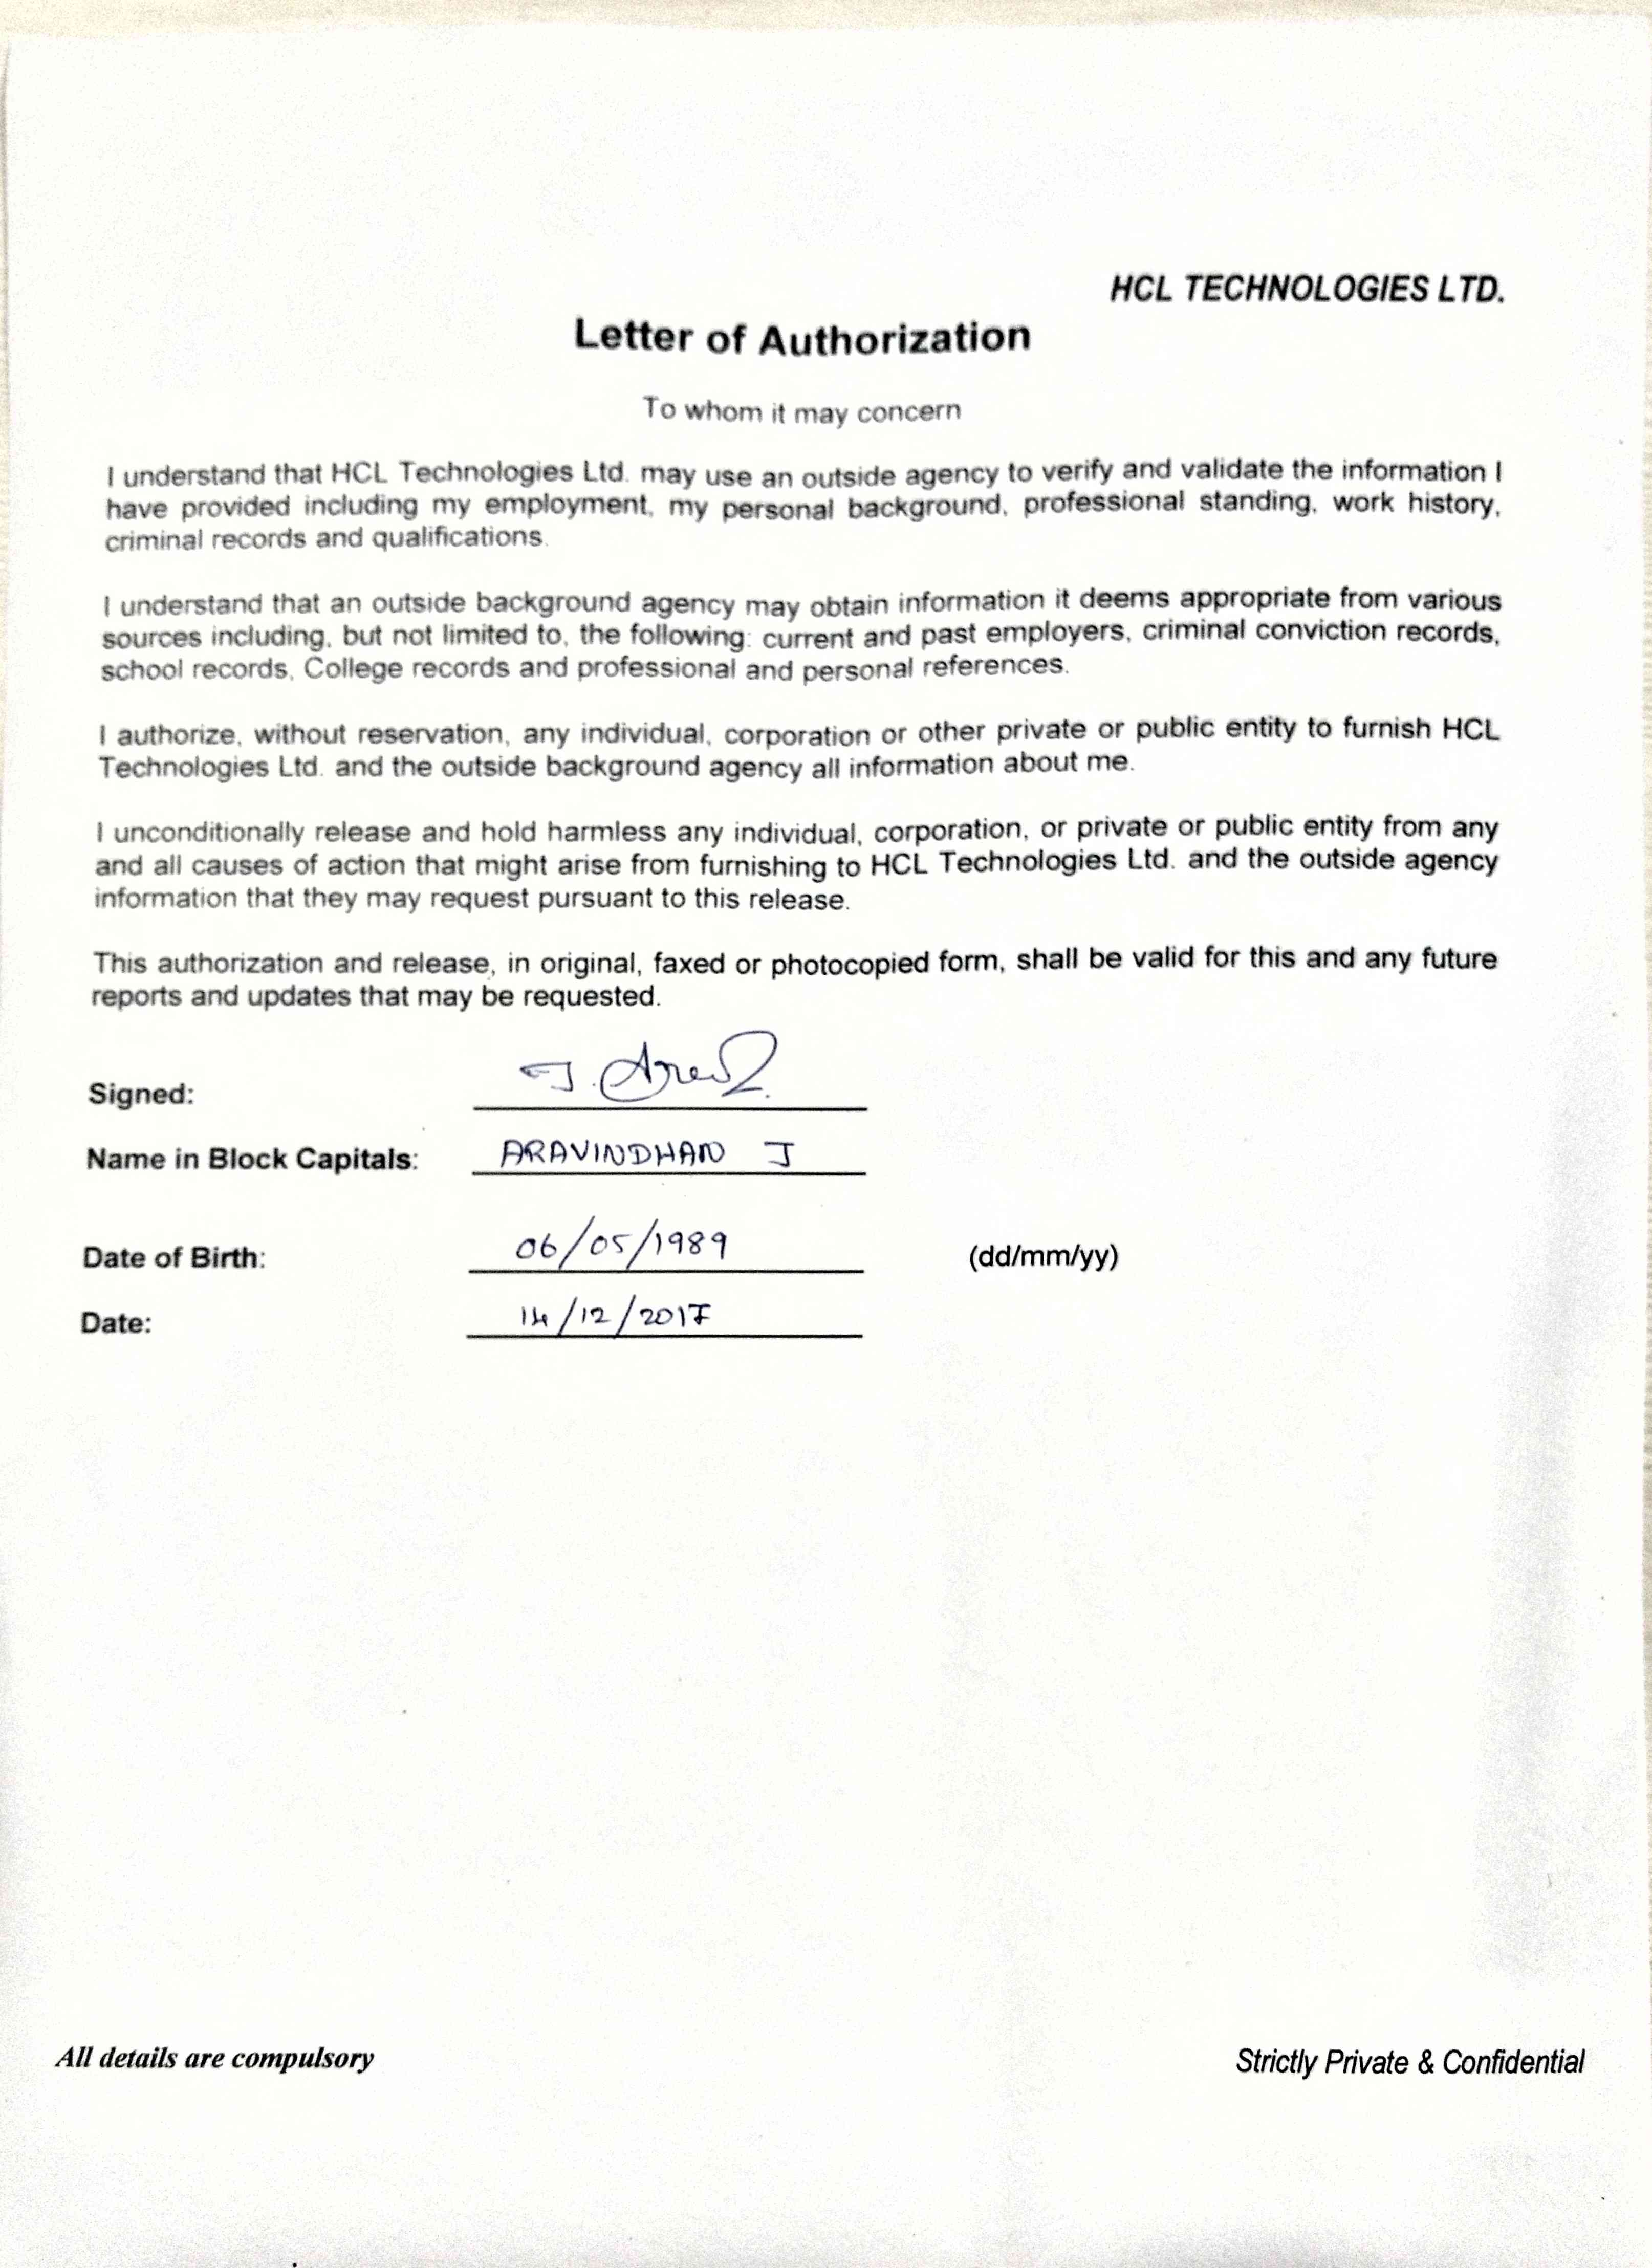 HCL TECHNOLOGIES LTD.
Letter of Authorization
To whom it may concern
I understand that HCL Technologies Ltd. may use an outside agency to verify and validate the information I
have provided including my employment, my personal background, professional standing, work history,
criminal records and qualifications.
I understand that an outside background agency may obtain information it deems appropriate from various
sources including, but not limited to, the following: current and past employers, criminal conviction records,
school records, College records and professional and personal references.
I authorize, without reservation, any individual, corporation or other private or public entity to furnish HCL
Technologies Ltd. and the outside background agency all information about me.
I unconditionally release and hold harmless any individual, corporation, or private or public entity from any
and all causes of action that might arise from furnishing to HCL Technologies Ltd. and the outside agency
information that they may request pursuant to this release.
This authorization and release, in original, faxed or photocopied form, shall be valid for this and any future
reports and updates that may be requested.
Signed:
Name in Block Capitals: ARAVINDHAN J
Date of Birth: 06/05/1989 (dd/mm/yy)
Date: 14/12/2017
All details are compulsory Strictly Private & Confidential